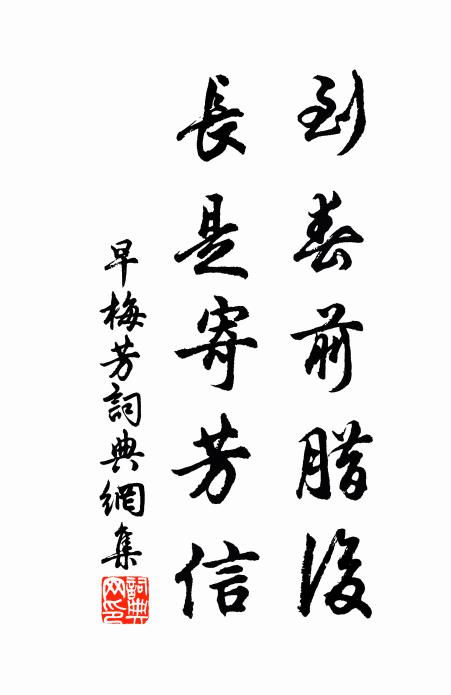 到春前腊後
長是寄芳信
早梅芳詞典網集
詞典網印